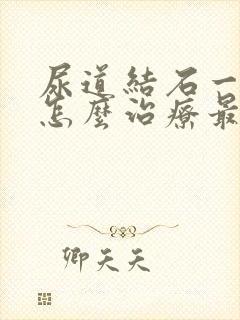 尿道結石一
怎麼治療最
卿天天